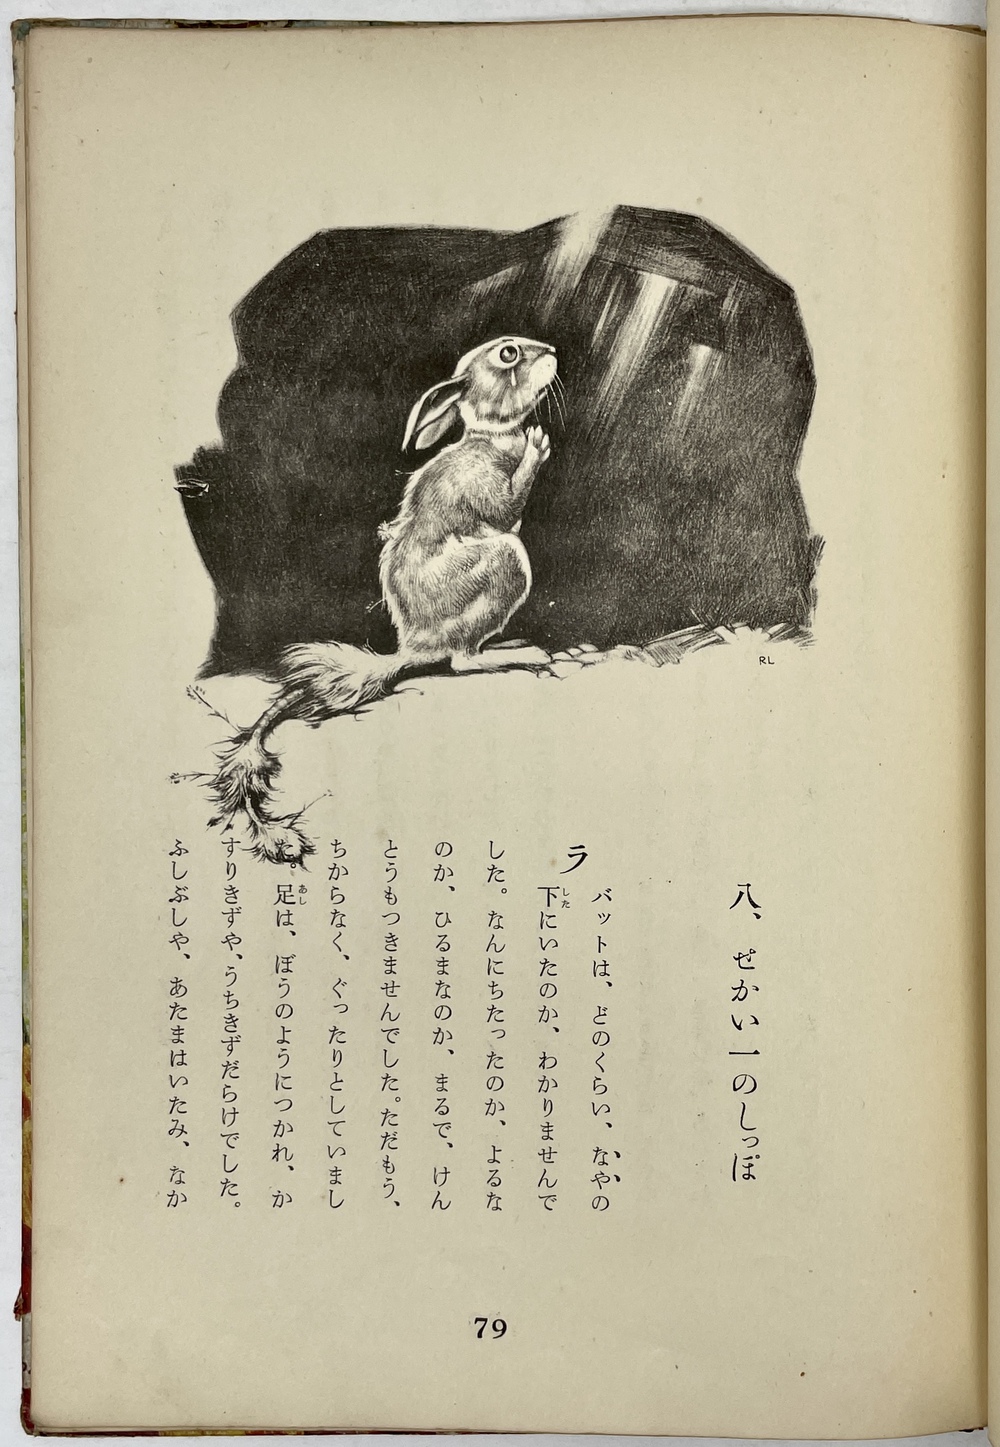 八、せかい一のしっぽ
ラバットは、どのくらい、なやの
下にいたのか、わかりませんで
した。なんにちたったのか、よるな
のか、ひるまなのか、まるで、けん
とうもつきませんでした。ただもう、
ちからなく、ぐったりとしていまし
た。足は、ぼうのようにつかれ、か
すりきずや、うちきずだらけでした。
ふしぶしや、あたまはいたみ、なか
した
あし
RL
79